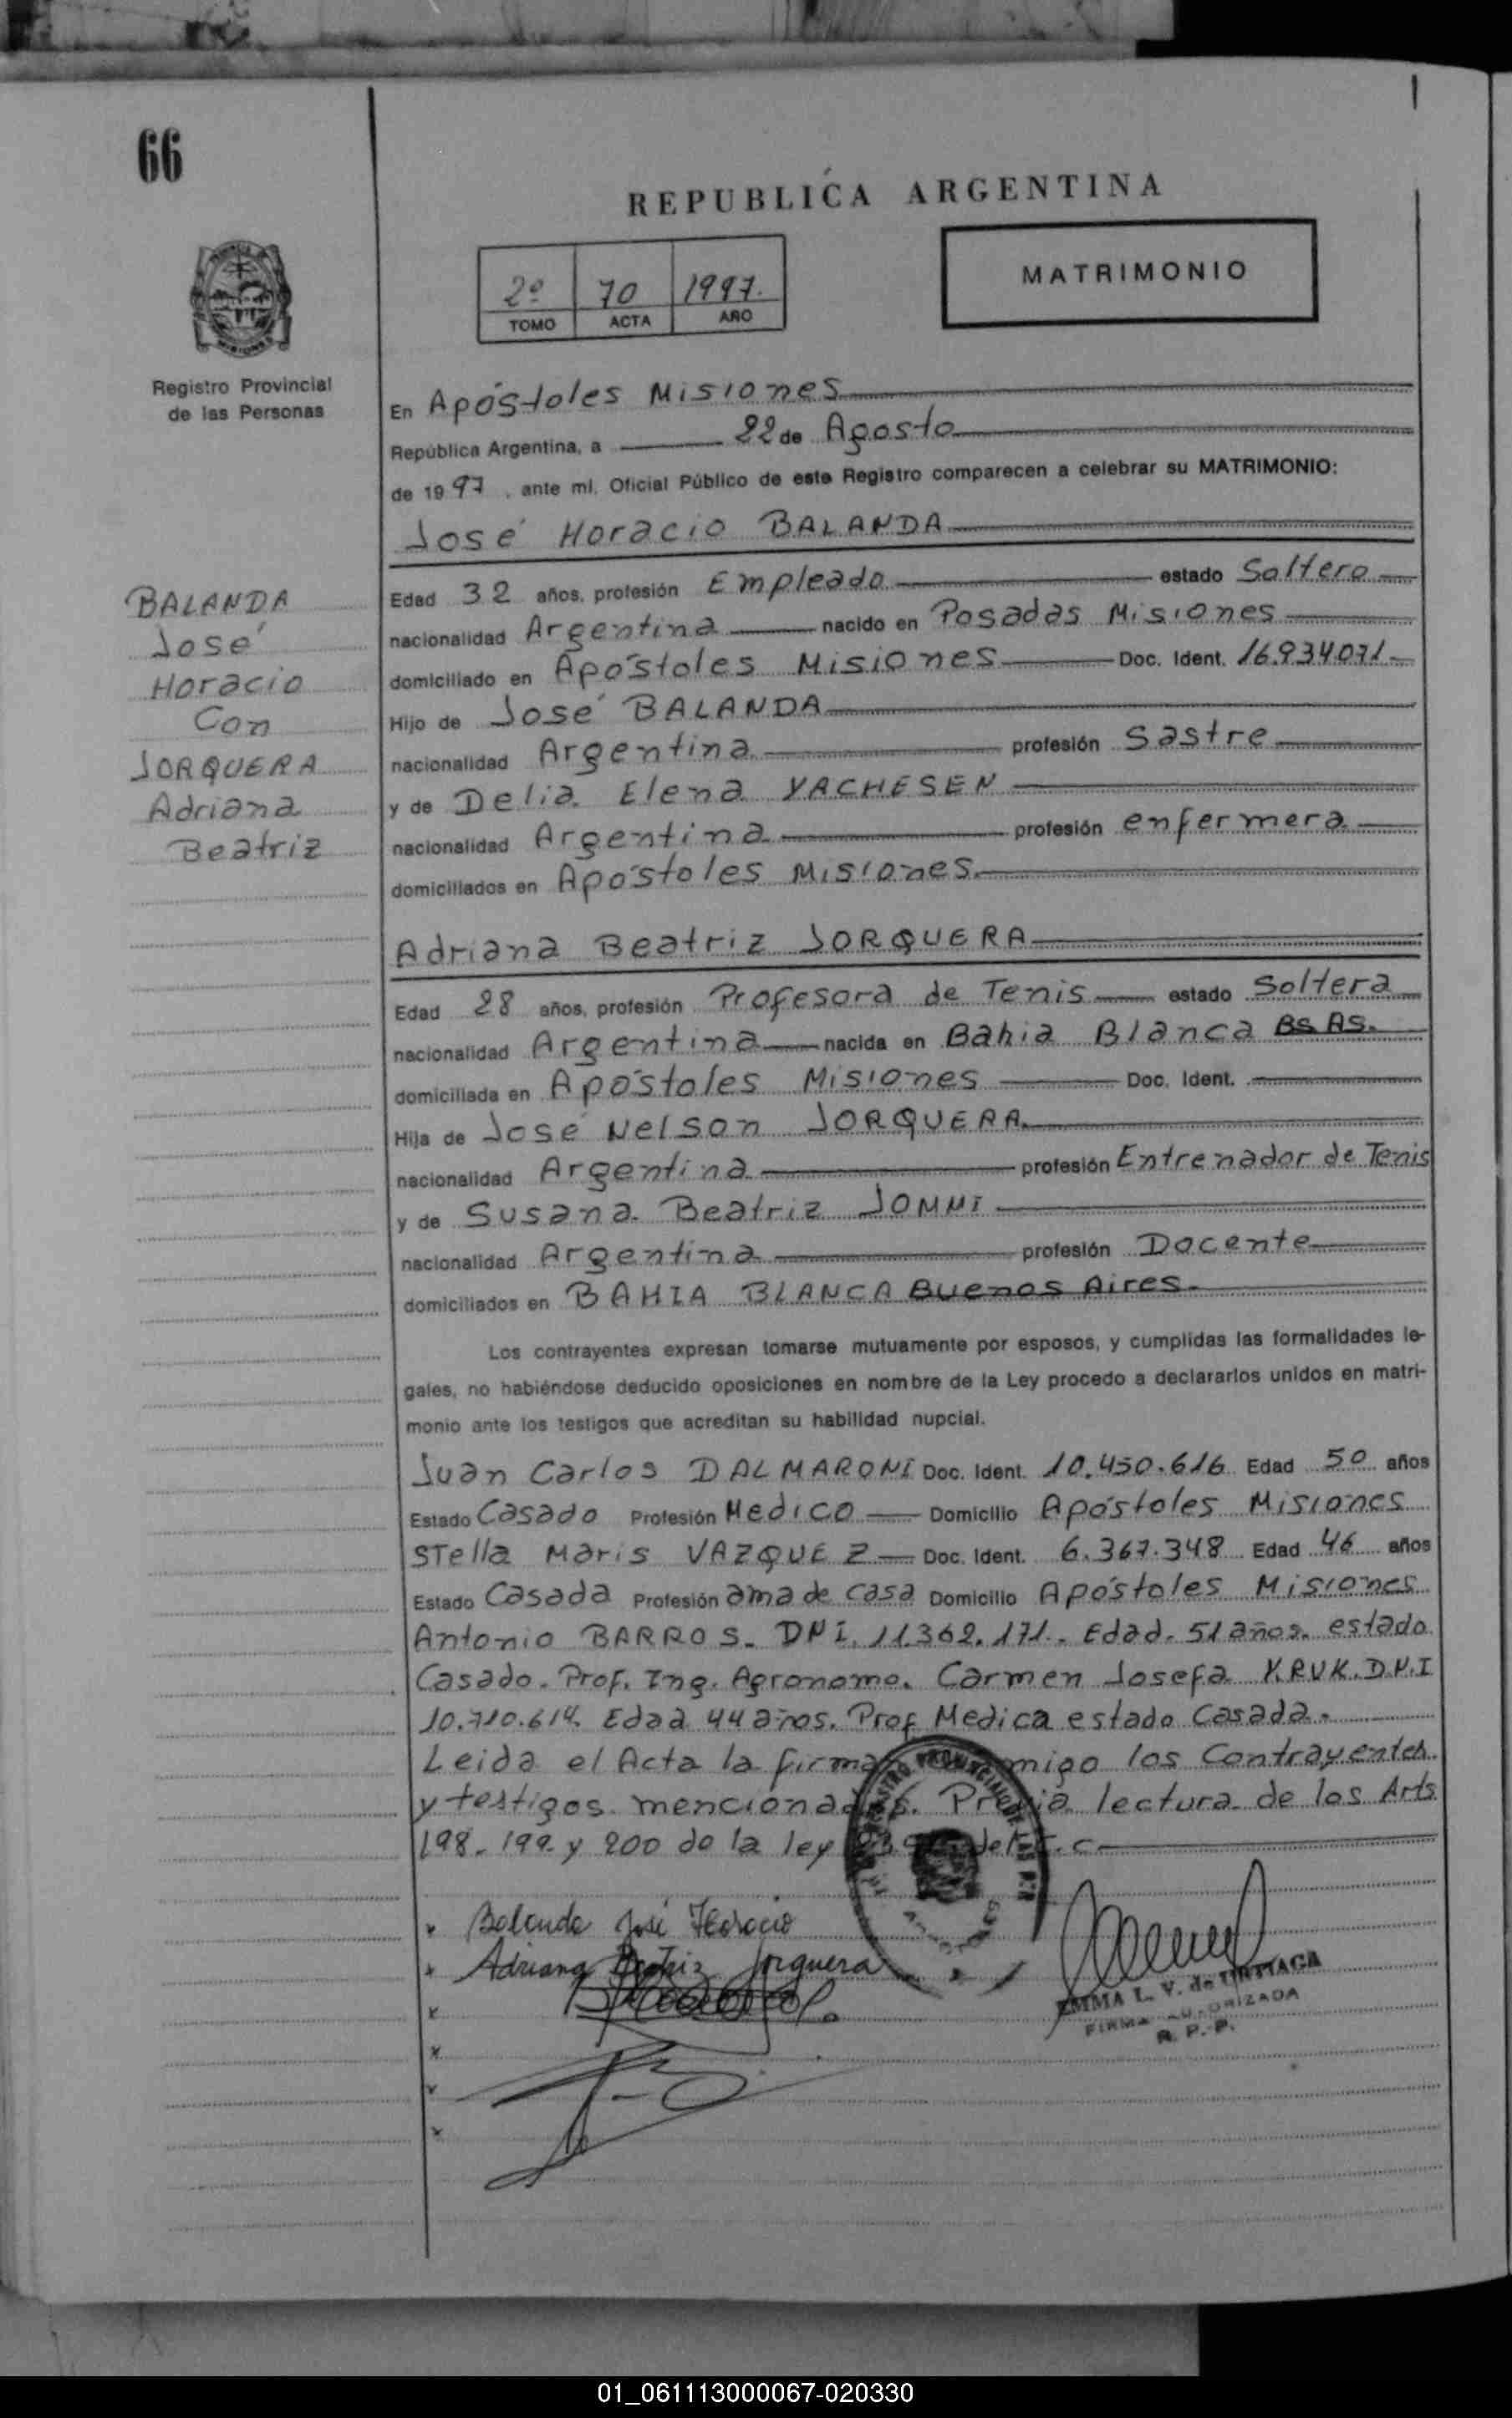 66
REPUBLICA ARGENTINA
2º 70 1997.
TOMO ACTA AÑO
MATRIMONIO
Registro Provincial
de las Personas
En Apóstoles Misiones
República Argentina, a 22 de Agosto
de 1997, ante mí, Oficial Público de este Registro comparecen a celebrar su MATRIMONIO:
José Horacio BALANDA
BALANDA
José
Horacio
Con
JORQUERA
Adriana
Beatriz
Edad 32 años, profesión Empleado estado Soltero
nacionalidad Argentina nacido en Posadas Misiones
domiciliado en Apóstoles Misiones Doc. Ident. 16.934071
Hijo de José BALANDA
nacionalidad Argentina profesión Sastre
y de Delia Elena YACHESEN
nacionalidad Argentina profesión enfermera
domiciliados en Apóstoles Misiones.
Adriana Beatriz JORQUERA
Edad 28 años, profesión Profesora de Tenis estado Soltera
nacionalidad Argentina nacida en Bahia Blanca BS AS.
domiciliada en Apóstoles Misiones Doc. Ident.
Hija de José Nelson JORQUERA.
nacionalidad Argentina profesión Entrenador de Tenis
y de Susana Beatriz JOMMI
nacionalidad Argentina profesión Docente
domiciliados en BAHIA BLANCA Buenos Aires.
Los contrayentes expresan tomarse mutuamente por esposos, y cumplidas las formalidades le-
gales, no habiéndose deducido oposiciones en nombre de la Ley procedo a declararlos unidos en matri-
monio ante los testigos que acreditan su habilidad nupcial.
Juan Carlos DALMARONI Doc. Ident. 10.450.616 Edad 50 años
Estado Casado Profesión Medico Domicilio Apóstoles Misiones
STella Maris VAZQUEZ Doc. Ident. 6.367.348 Edad 46 años
Estado Casada Profesión ama de casa Domicilio Apóstoles Misiones
Antonio BARROS. DNI. 11.362.171. Edad. 51 años. estado
Casado. Prof. Ing. Agronomo. Carmen Josefa KRUK. D.N.I
10.710.614. Edad 44 años. Prof Medica estado Casada.
Leida el Acta la firman los Contrayentes
y testigos mencionados. Previa lectura de los Arts
198. 199 y 200 de la ley
Balanda José Horacio
Adriana Beatriz Jorquera
EMMA L. V. de URTIAGA
FIRMA AUTORIZADA
R. P. P.
01_061113000067-020330